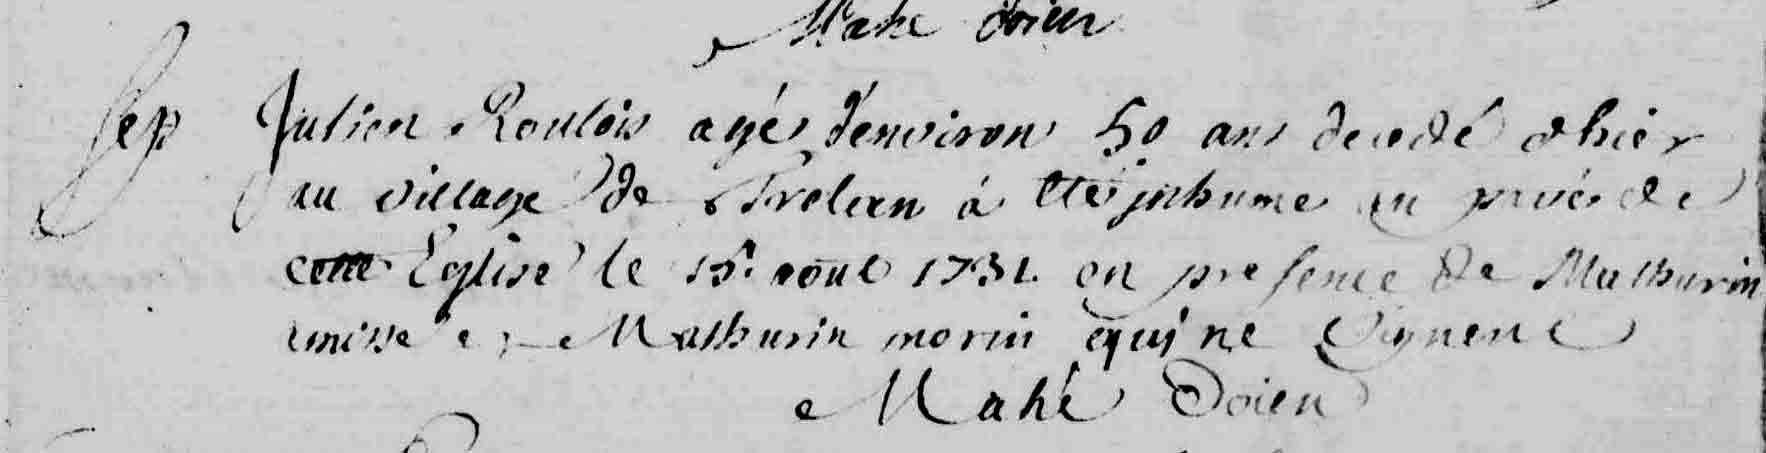 Mahé doien
Sep Julien Roulois agé d'environ 50 ans decedé d'hier
au village de Trelan à été inhume au privé de
cette Eglise le 15e aout 1731 en presence de Mathurin
et Mathurin morin qui ne signent
Mahé Doien